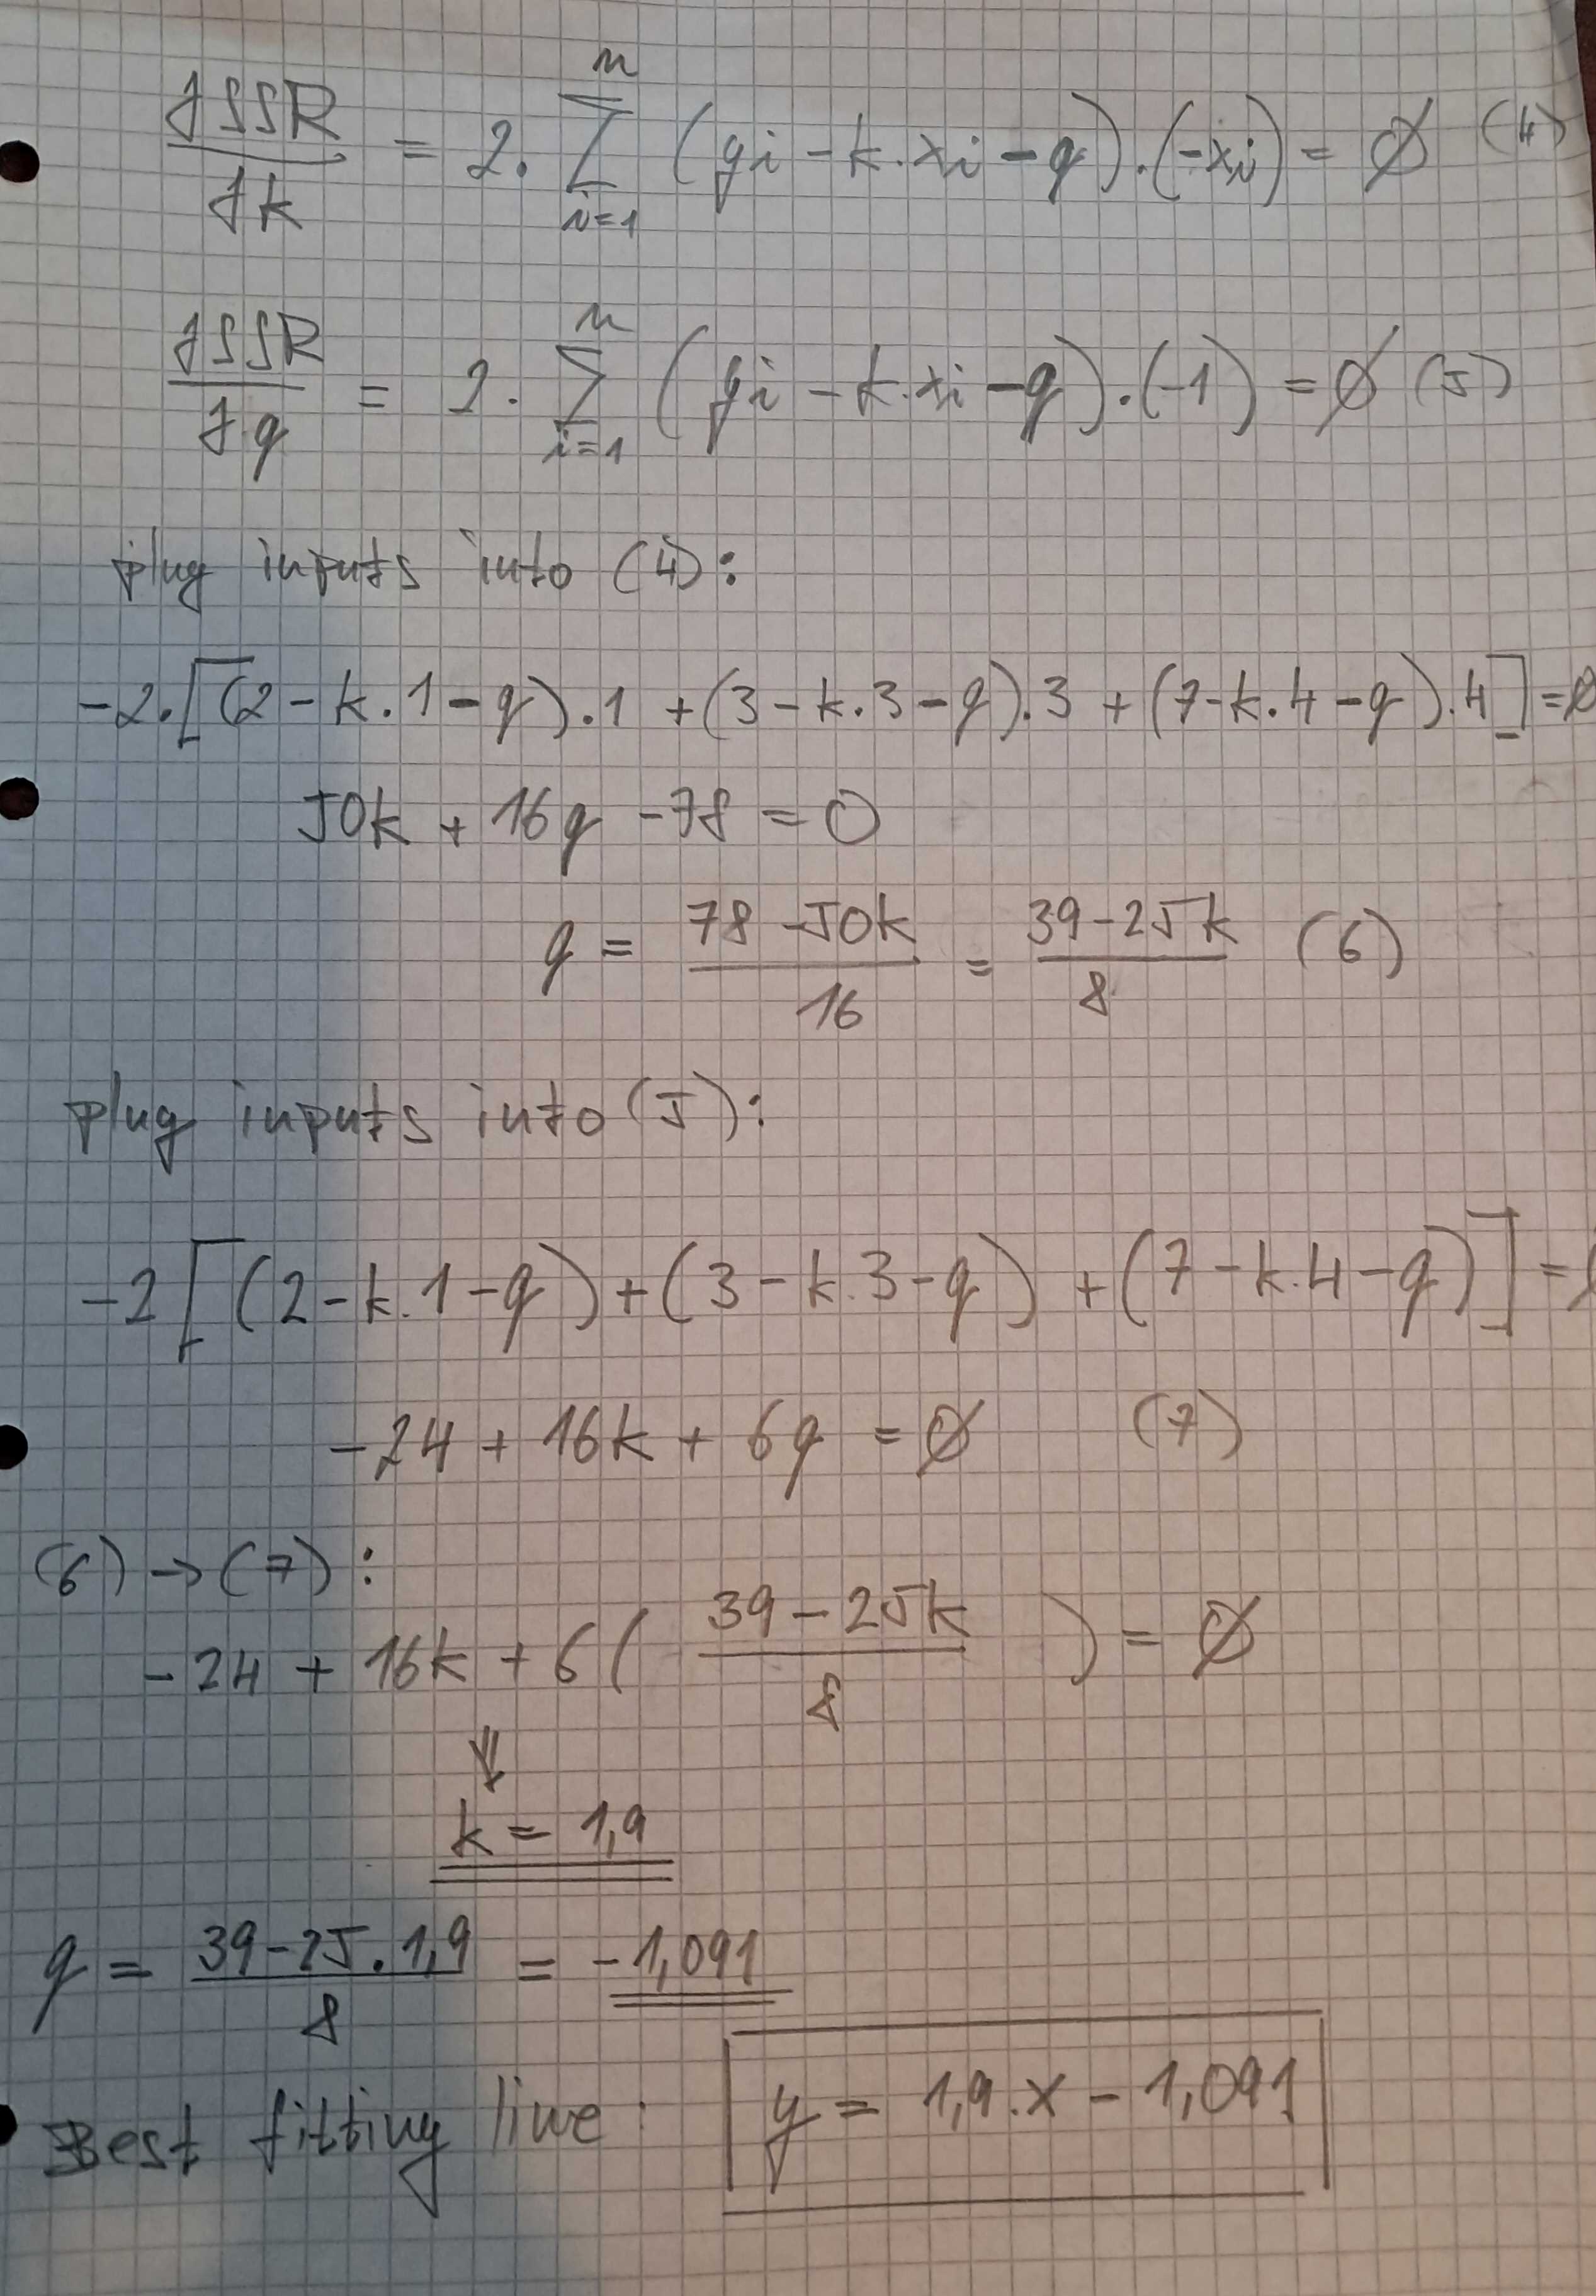 ∂SSR/∂k = 2·∑_{i=1}^{n} (yi - k·xi - q)·(-xi) = ∅ (4)
∂SSR/∂q = 2·∑_{i=1}^{n} (yi - k·xi - q)·(-1) = ∅ (5)
plug inputs into (4):
-2·[(2 - k·1 - q)·1 + (3 - k·3 - q)·3 + (7 - k·4 - q)·4] = ∅
50k + 16q - 78 = 0
q = (78 - 50k)/16 = (39 - 25k)/8 (6)
plug inputs into (5):
-2[(2 - k·1 - q) + (3 - k·3 - q) + (7 - k·4 - q)] =
-24 + 16k + 6q = ∅ (7)
(6) → (7):
-24 + 16k + 6((39 - 25k)/8) = ∅
⇓
k = 1,9
q = (39 - 25·1,9)/8 = -1,091
Best fitting line: y = 1,9·x - 1,091